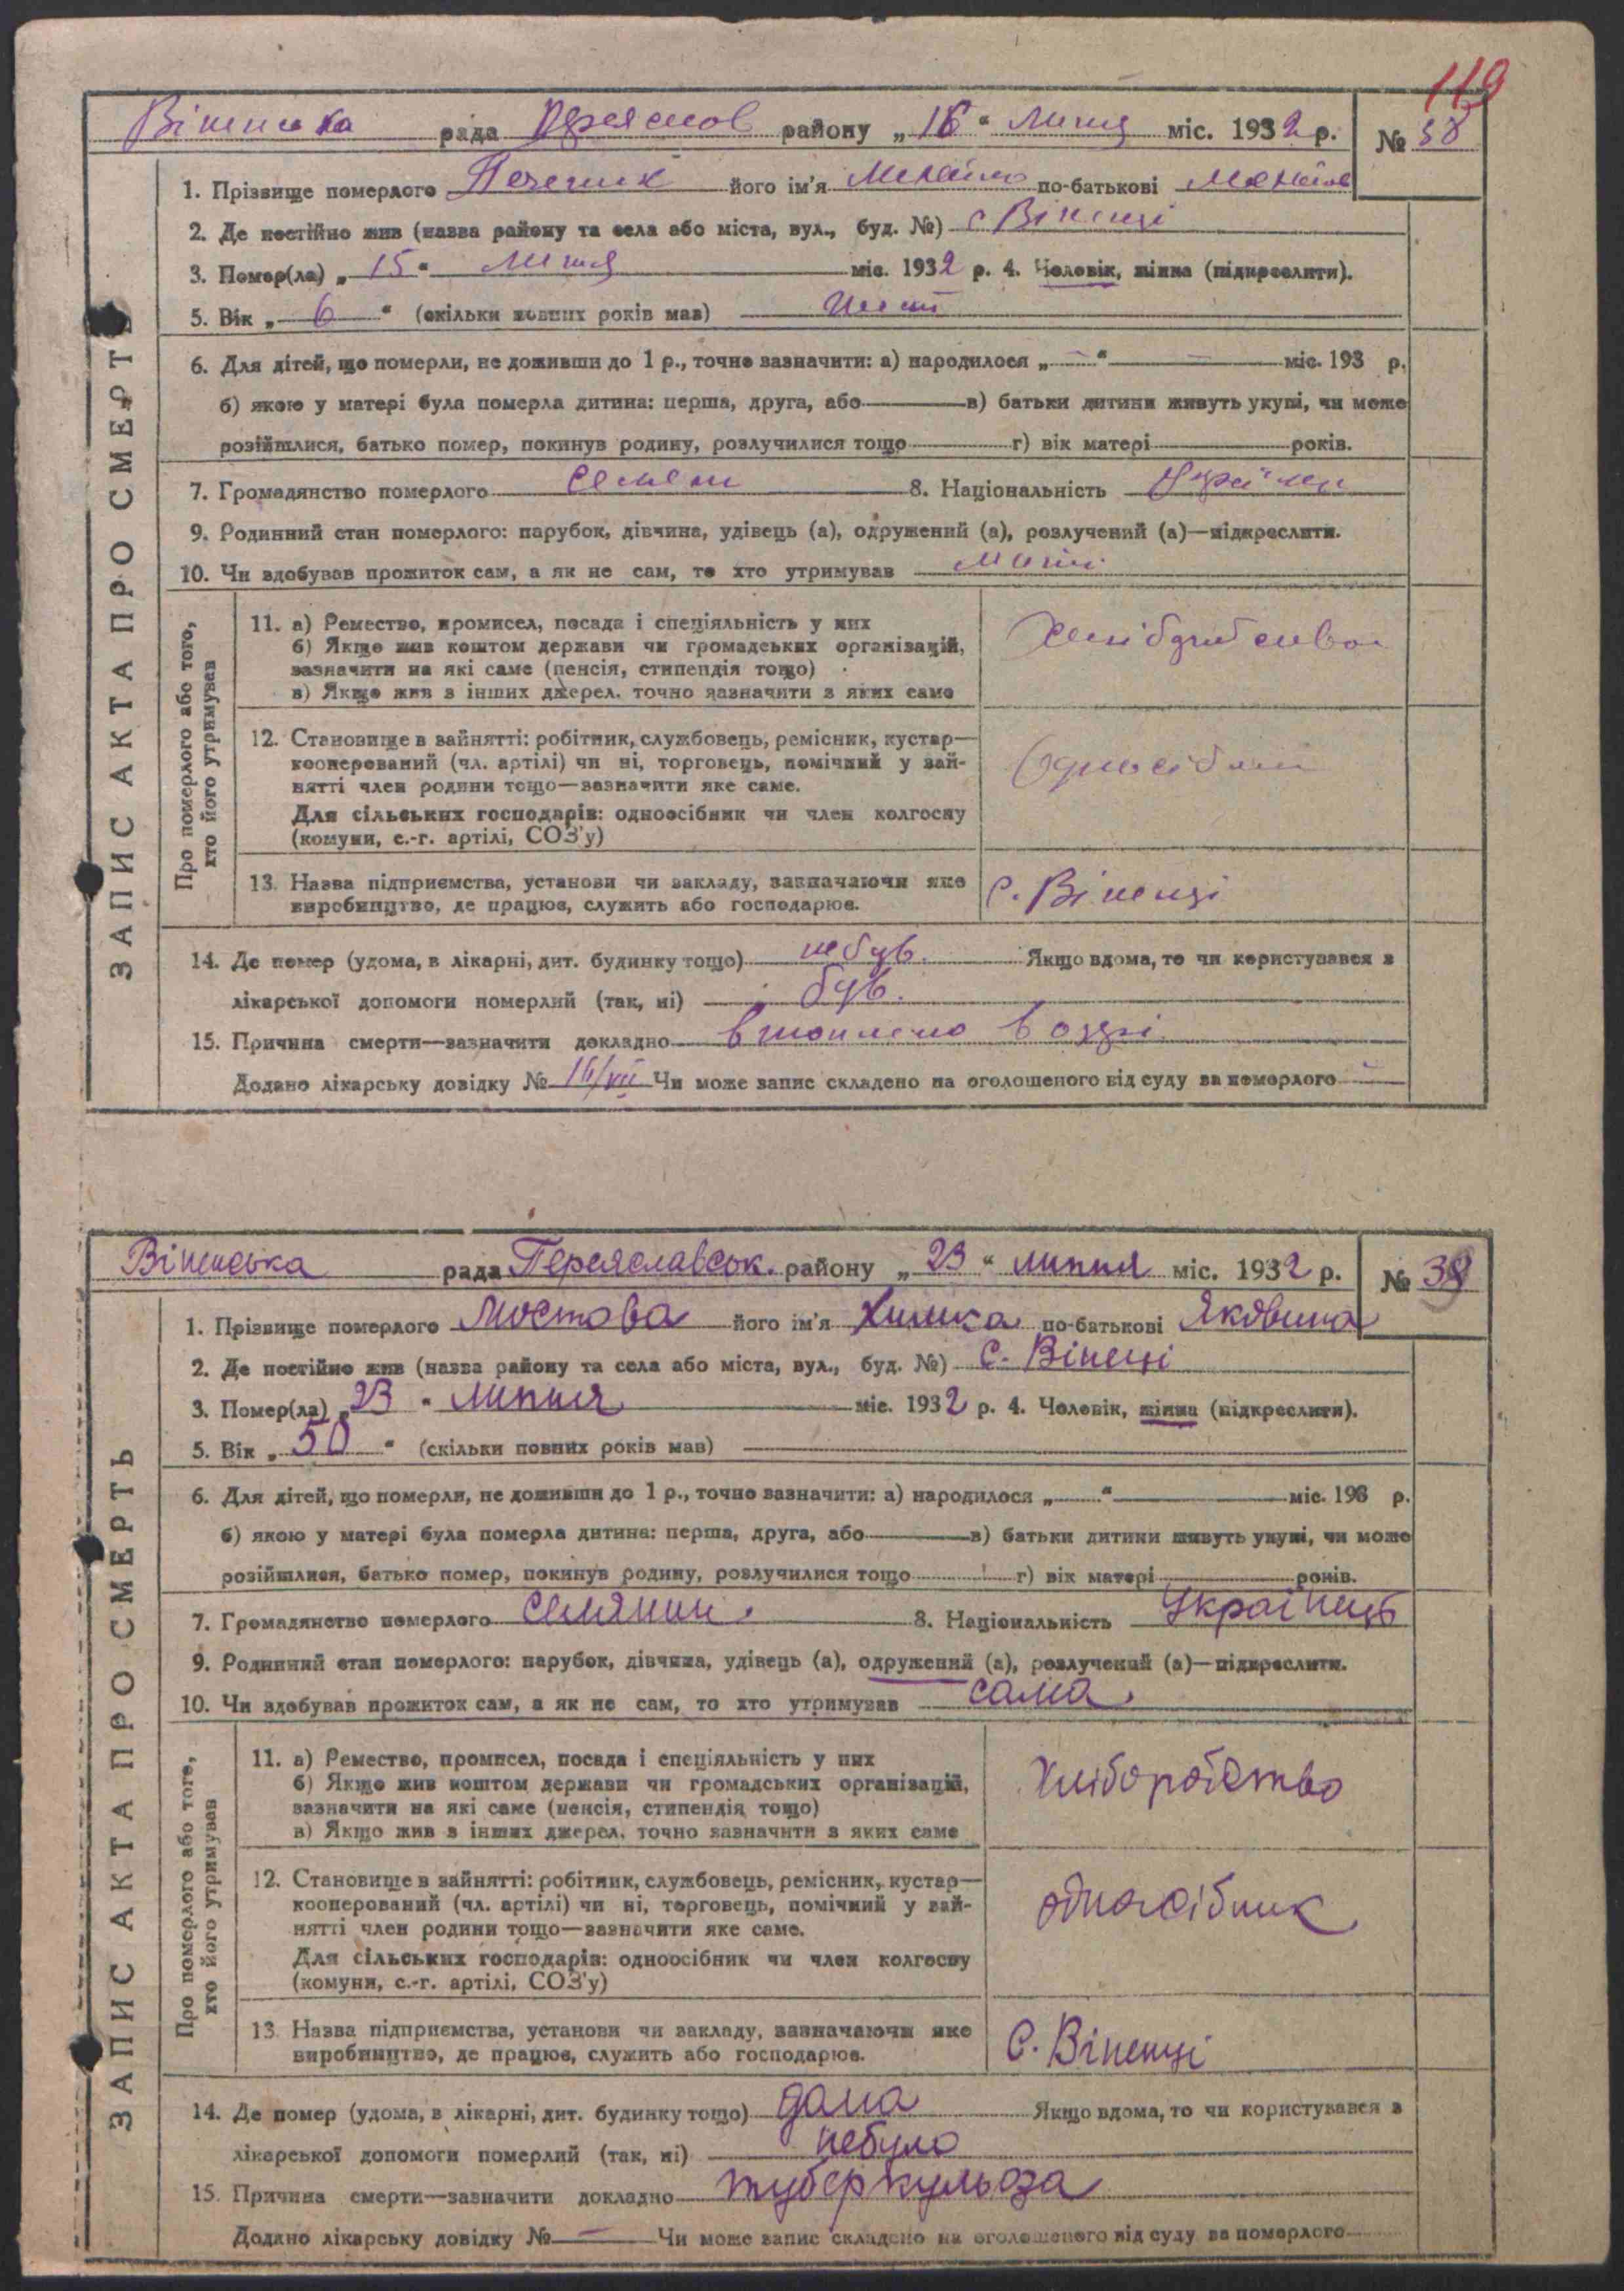 119
Віненська рада Переяслов району „16“ Липня міс. 1932 р. № 38
1. Прізвище померлого його ім'я Михайло по-батькові
2. Де постійно жив (назва району та села або міста, вул., буд. №) с Віненці
3. Помер(ла) „15“ Липня міс. 1932 р. 4. Чоловік, жінка (підкреслити).
5. Вік „6“ (скільки повних років мав) шість
6. Для дітей, що померли, не доживши до 1 р., точно зазначити: а) народилося „—“ — міс. 193 р.
б) якою у матері була померла дитина: перша, друга, або в) батьки дитини живуть укупі, чи може
розійшлися, батько помер, покинув родину, розлучилися тощо г) вік матері років.
7. Громадянство померлого селян 8. Національність Україн
9. Родинний стан померлого: парубок, дівчина, удівець (а), одружений (а), розлучений (а)—підкреслити.
10. Чи здобував прожиток сам, а як не сам, то хто утримував
ЗАПИС АКТА ПРО СМЕРТЬ
Про померлого або того, хто його утримував
11. а) Ремество, промисел, посада і спеціяльність у них
б) Якщо жив коштом держави чи громадських організацій,
зазначити на які саме (пенсія, стипендія тощо)
в) Якщо жив з інших джерел, точно зазначити з яких саме
Хлібробство
12. Становище в зайнятті: робітник, службовець, ремісник, кустар—
кооперований (чл. артілі) чи ні, торговець, помічний у зай-
нятті член родини тощо—зазначити яке саме.
Для сільських господарів: одноосібник чи член колгоспу
(комуни, с.-г. артілі, СОЗ'у)
Одноосібник
13. Назва підприємства, установи чи закладу, зазначаючи яке
виробництво, де працює, служить або господарює.
с. Віненці
14. Де помер (удома, в лікарні, дит. будинку тощо) не був. Якщо вдома, то чи користувався з
лікарської допомоги померлий (так, ні) був.
15. Причина смерти—зазначити докладно втоплено в озері
Додано лікарську довідку № 16/VII Чи може запис складено на оголошеного від суду за померлого —
Віненська рада Переяславськ. району „23“ липня міс. 1932 р. № 39
1. Прізвище померлого Мостова його ім'я Химка по-батькові Яковина
2. Де постійно жив (назва району та села або міста, вул., буд. №) с. Віненці
3. Помер(ла) „23“ липня міс. 1932 р. 4. Чоловік, жінка (підкреслити).
5. Вік „50“ (скільки повних років мав)
6. Для дітей, що померли, не доживши до 1 р., точно зазначити: а) народилося „ “ міс. 193 р.
б) якою у матері була померла дитина: перша, друга, або в) батьки дитини живуть укупі, чи може
розійшлися, батько помер, покинув родину, розлучилися тощо г) вік матері років.
7. Громадянство померлого селянин. 8. Національність Українець
9. Родинний стан померлого: парубок, дівчина, удівець (а), одружений (а), розлучений (а)—підкреслити.
10. Чи здобував прожиток сам, а як не сам, то хто утримував сама.
ЗАПИС АКТА ПРО СМЕРТЬ
Про померлого або того, хто його утримував
11. а) Ремество, промисел, посада і спеціяльність у них
б) Якщо жив коштом держави чи громадських організацій,
зазначити на які саме (пенсія, стипендія тощо)
в) Якщо жив з інших джерел, точно зазначити з яких саме
хліборобство
12. Становище в зайнятті: робітник, службовець, ремісник, кустар—
кооперований (чл. артілі) чи ні, торговець, помічний у зай-
нятті член родини тощо—зазначити яке саме.
Для сільських господарів: одноосібник чи член колгоспу
(комуни, с.-г. артілі, СОЗ'у)
одноосібник
13. Назва підприємства, установи чи закладу, зазначаючи яке
виробництво, де працює, служить або господарює.
с. Віненці
14. Де помер (удома, в лікарні, дит. будинку тощо) дома Якщо вдома, то чи користувався з
лікарської допомоги померлий (так, ні) небуло
15. Причина смерти—зазначити докладно туберкульоза
Додано лікарську довідку № — Чи може запис складено на оголошеного від суду за померлого